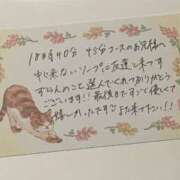 18時40分 45分コースのお兄様へ
中々来ないソープに友達と来って
すずらんのこと選んでくれてありがとう
ございます!!最後まですごく優しくて
嬉しかったです♡また来てネ!!!